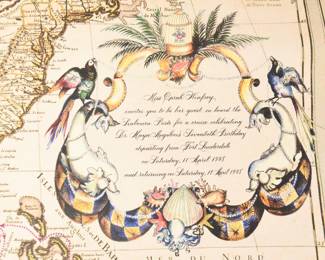 Miss Oprah Winfrey,
invites you to be her guest on board the
Seabourn Pride for a cruise celebrating
Dr. Maya Angelou's Seventieth Birthday
departing from Fort Lauderdale
on Saturday, 11 April 1998
and returning on Saturday, 18 April 1998
MER DU NORD